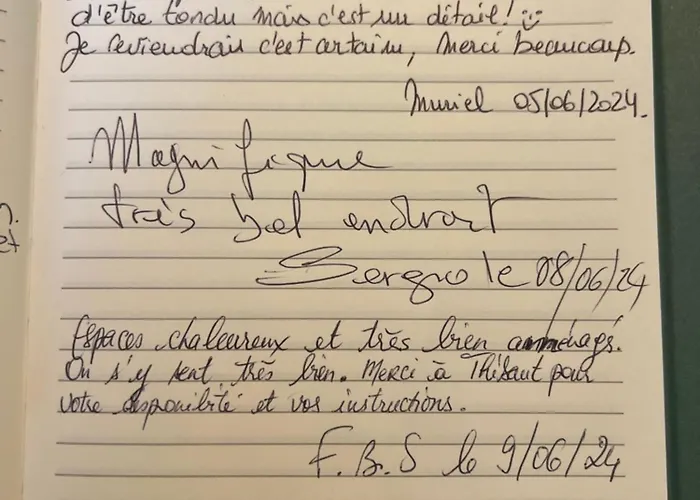 d'être tondu mais c'est un détail!
Je reviendrais c'est certain, Merci beaucoup.
Muriel 05/06/2024.
Magnifique
très bel endroit
Sergio le 08/06/24
Espaces chaleureux et très bien aménagés.
On s'y sent très bien. Merci à Thibaut pour
votre disponibilité et vos instructions.
F.B.S le 9/06/24